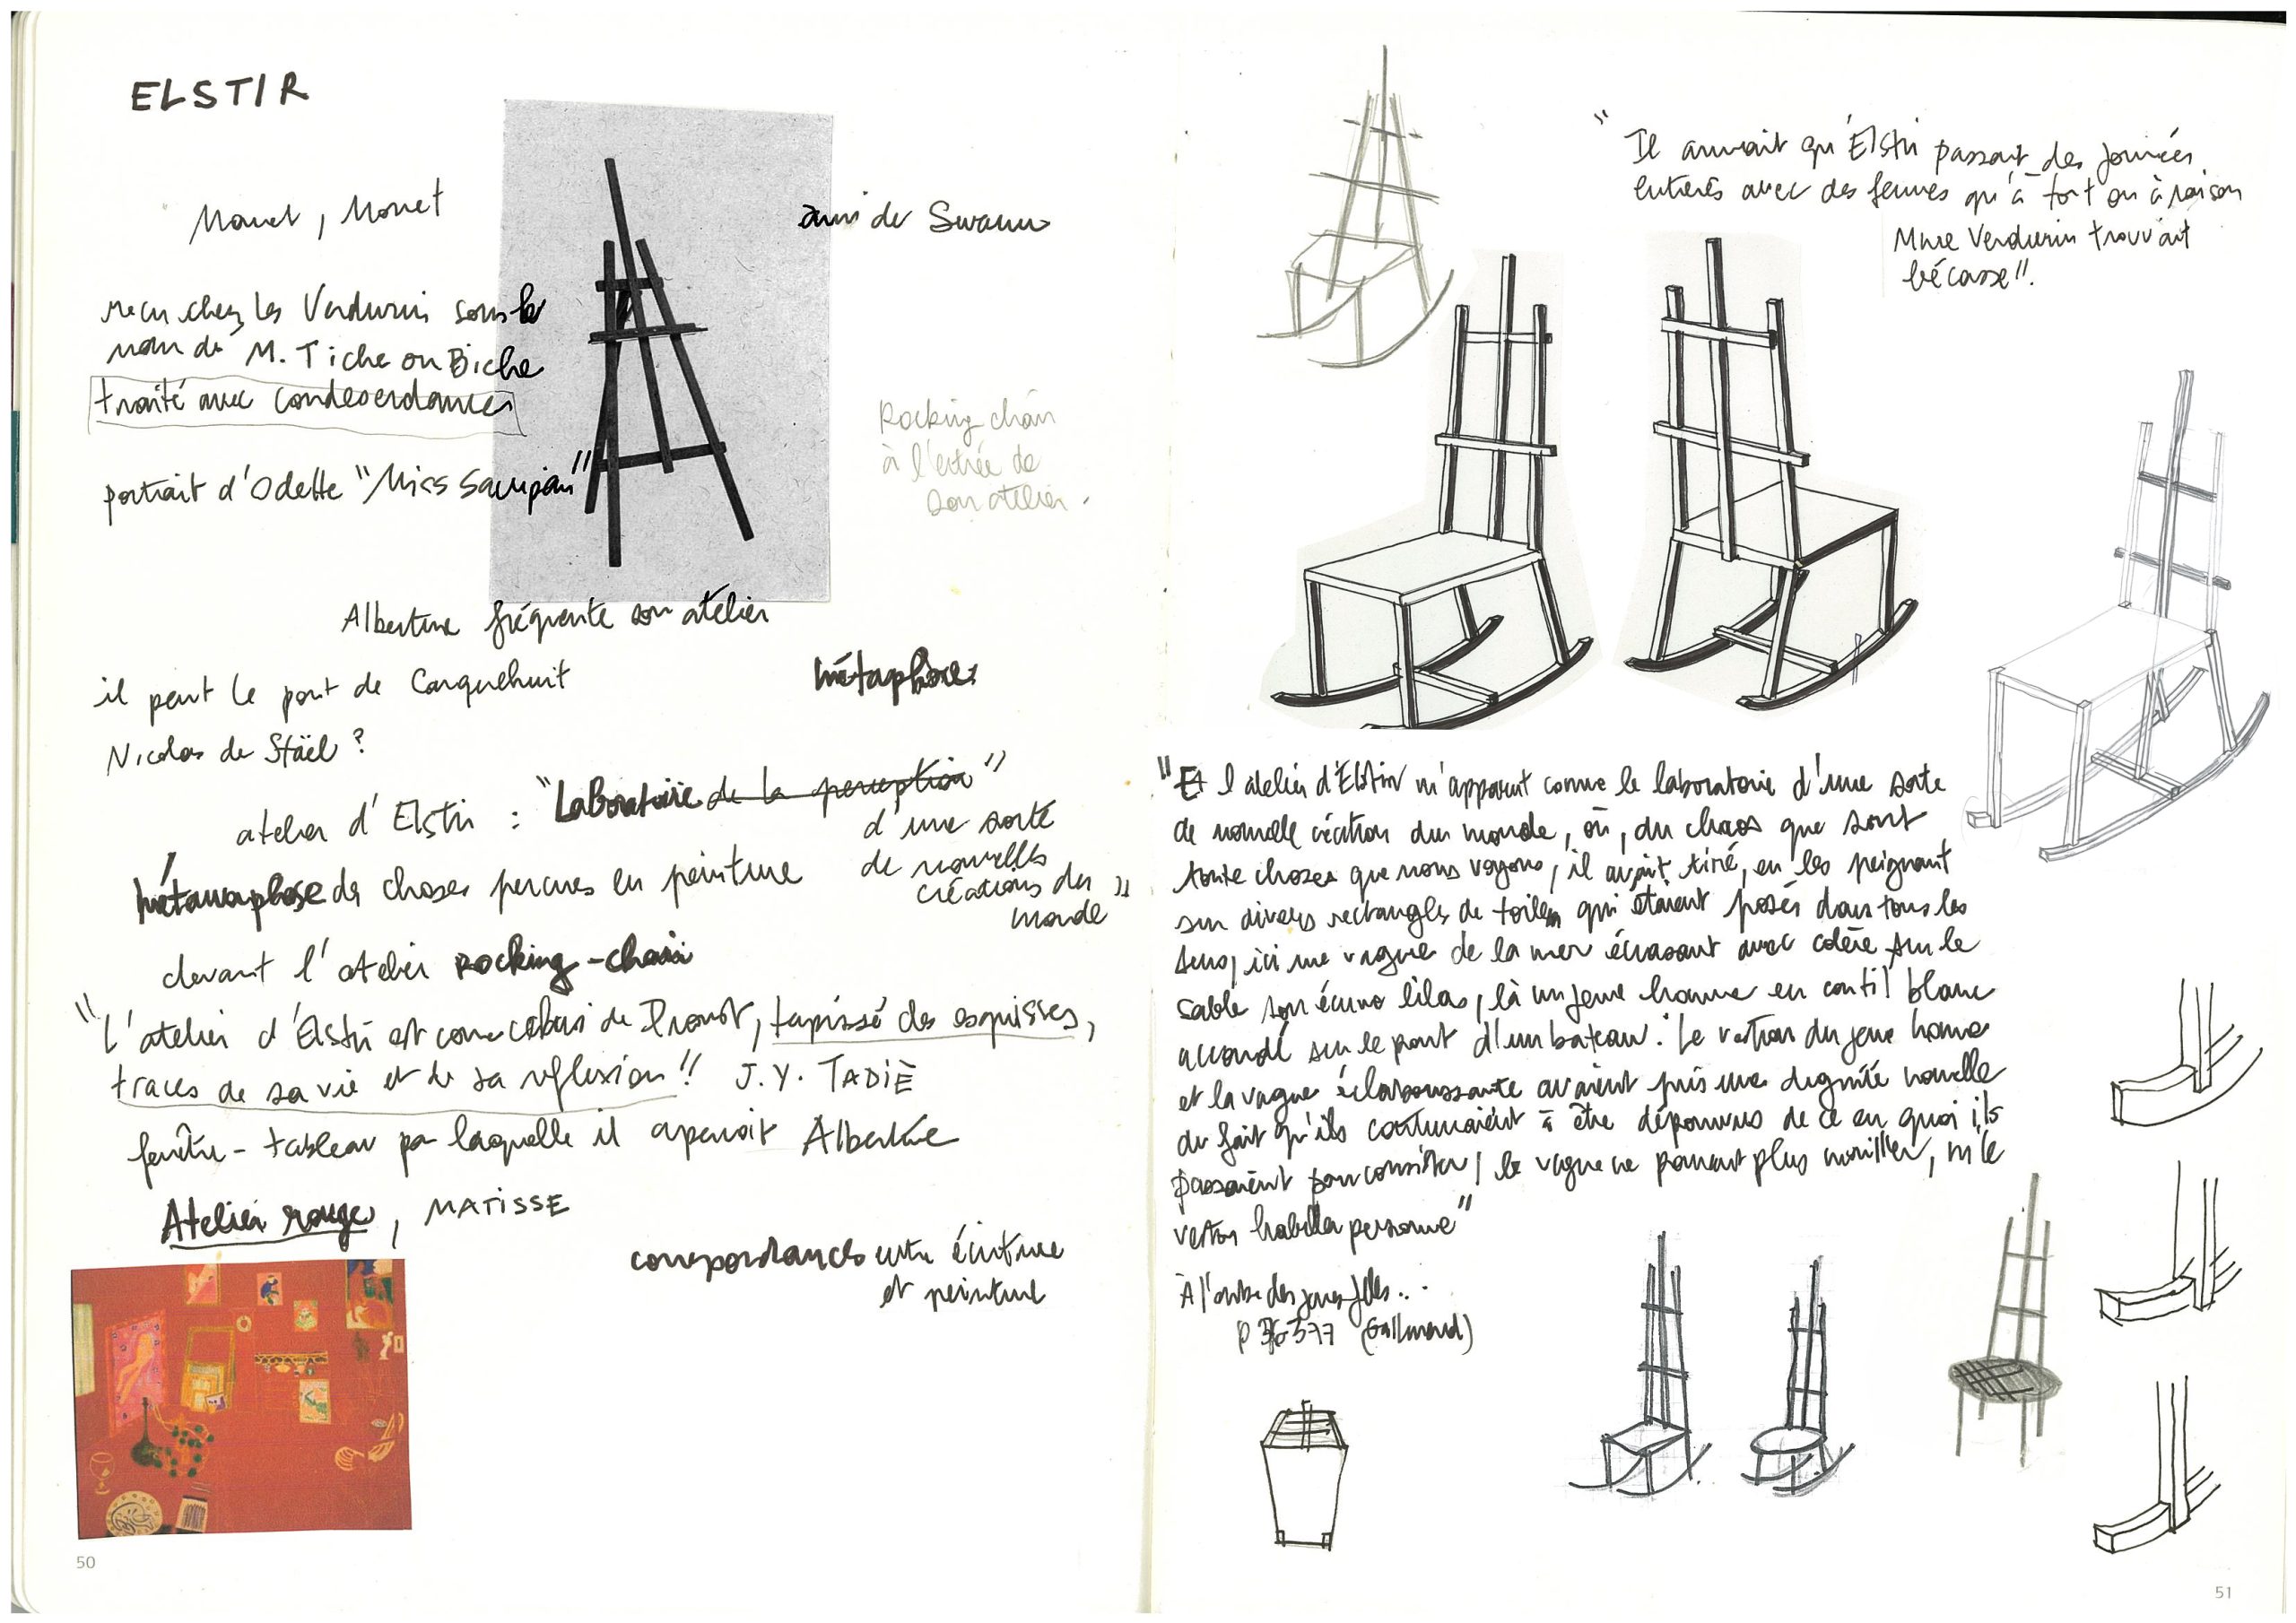 ELSTIR
Manet, Monet
ami de Swann
reçu chez les Verdurin sous le
nom de M. Tiche ou Biche
traité avec condescendance
portrait d'Odette "Miss Sacripan"
Rocking chair
à l'entrée de
son atelier.
Albertine fréquente son atelier
il peint le port de Carquehuit
métaphore
Nicolas de Staël ?
atelier d'Elstir : "Laboratoire de la perception"
d'une sorte
de nouvelles
créations du
monde"
métamorphose des choses perçues en peinture
devant l'atelier rocking-chair
"L'atelier d'Elstir est comme celui de Proust, tapissé des esquisses,
traces de sa vie et de sa réflexion" J.Y. TADIÉ
fenêtre - tableau par laquelle il aperçoit Albertine
Atelier rouge, MATISSE
correspondances entre écriture
et peinture
50
"Il arrivait qu'Elstir passait des journées
entières avec des femmes qu'à tort ou à raison
Mme Verdurin trouvait
bécasse".
"Et l'atelier d'Elstir m'apparut comme le laboratoire d'une sorte
de nouvelle création du monde, où, du chaos que sont
toute choses que nous voyons, il avait tiré, en les peignant
sur divers rectangles de toiles qui étaient posés dans tous les
sens, ici une vague de la mer écrasant avec colère sur le
sable son écume lilas, là un jeune homme en coutil blanc
accoudé sur le pont d'un bateau. Le veston du jeune homme
et la vague éclaboussante avaient pris une dignité nouvelle
du fait qu'ils continuaient à être dépourvus de ce en quoi ils
passaient pour consister, la vague ne pouvant plus mouiller, ni le
veston habiller personne"
À l'ombre des jeunes filles...
p 377 (Gallimard)
51